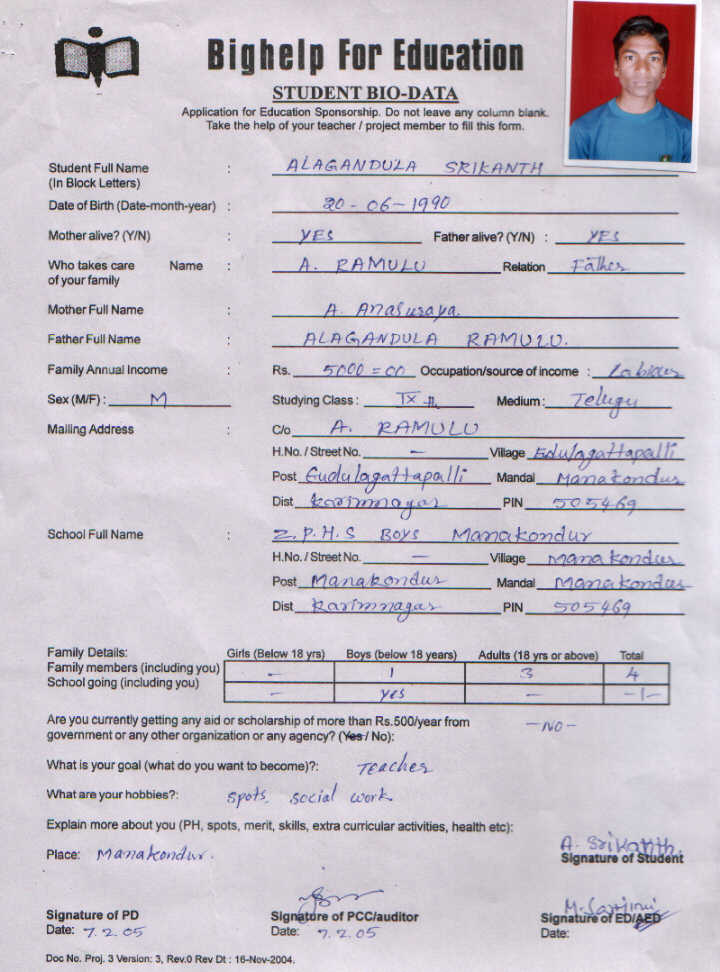 Bighelp For Education
STUDENT BIO-DATA
Application for Education Sponsorship. Do not leave any column blank.
Take the help of your teacher / project member to fill this form.
Student Full Name : ALAGANDULA SRIKANTH
(In Block Letters)
Date of Birth (Date-month-year) : 20-06-1990
Mother alive? (Y/N) : YES Father alive? (Y/N) : YES
Who takes care Name : A. RAMULU Relation Father
of your family
Mother Full Name : A. Anasuraya.
Father Full Name : ALAGANDULA RAMULU.
Family Annual Income : Rs. 5000=00 Occupation/source of income : Labour
Sex (M/F) : M Studying Class : IX Medium : Telugu
Mailing Address : C/o A. RAMULU
H.No. / Street No. - Village Edulagattapalli
Post Gudulagattapalli Mandal Manakondur
Dist Karimnagar PIN 505469
School Full Name : Z.P.H.S BOYS Manakondur
H.No. / Street No. - Village Manakondur
Post Manakondur Mandal Manakondur
Dist Karimnagar PIN 505469
Family Details: Girls (Below 18 yrs) Boys (below 18 years) Adults (18 yrs or above) Total
Family members (including you) - 1 3 4
School going (including you) - yes - -1-
Are you currently getting any aid or scholarship of more than Rs.500/year from -NO-
government or any other organization or any agency? (Yes / No):
What is your goal (what do you want to become)?: Teacher
What are your hobbies?: spots, social work
Explain more about you (PH, spots, merit, skills, extra curricular activities, health etc):
Place: Manakondur. A. Srikanth.
Signature of Student
Signature of PD Signature of PCC/auditor Signature of ED/AED
Date: 7.2.05 Date: 7.2.05 Date:
Doc No. Proj. 3 Version: 3, Rev.0 Rev Dt : 16-Nov-2004.